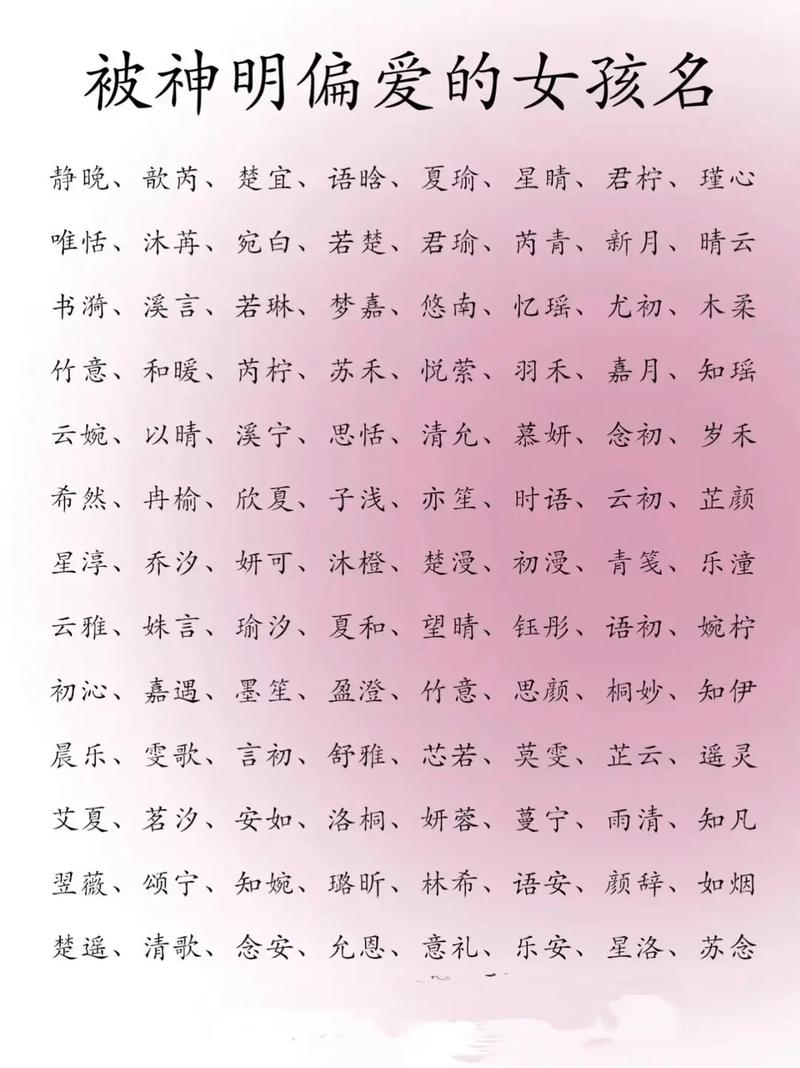 被神明偏爱的女孩名
静晚、歆芮、楚宜、语晗、夏瑜、星晴、君柠、瑾心
唯恬、沐苒、宛白、若楚、君瑜、芮青、新月、晴云
书漪、溪言、若琳、梦嘉、悠南、忆瑶、尤初、木柔
竹意、和暖、芮柠、苏禾、悦萦、羽禾、嘉月、知瑶
云婉、以晴、溪宁、思恬、清允、慕妍、念初、岁禾
希然、冉榆、欣夏、子浅、亦笙、时语、云初、芷颜
星淳、乔汐、妍可、沐橙、楚漫、初漫、青笺、乐潼
云雅、姝言、瑜汐、夏和、望晴、钰彤、语初、婉柠
初沁、嘉遇、墨笙、盈澄、竹意、思颜、桐妙、知伊
晨乐、雯歌、言初、舒雅、芯若、莫雯、芷云、遥灵
艾夏、茗汐、安如、洛桐、妍蓉、蔓宁、雨清、知凡
翌薇、颂宁、知婉、璐昕、林希、语安、颜辞、如烟
楚遥、清歌、念安、允恩、意礼、乐安、星洛、苏念